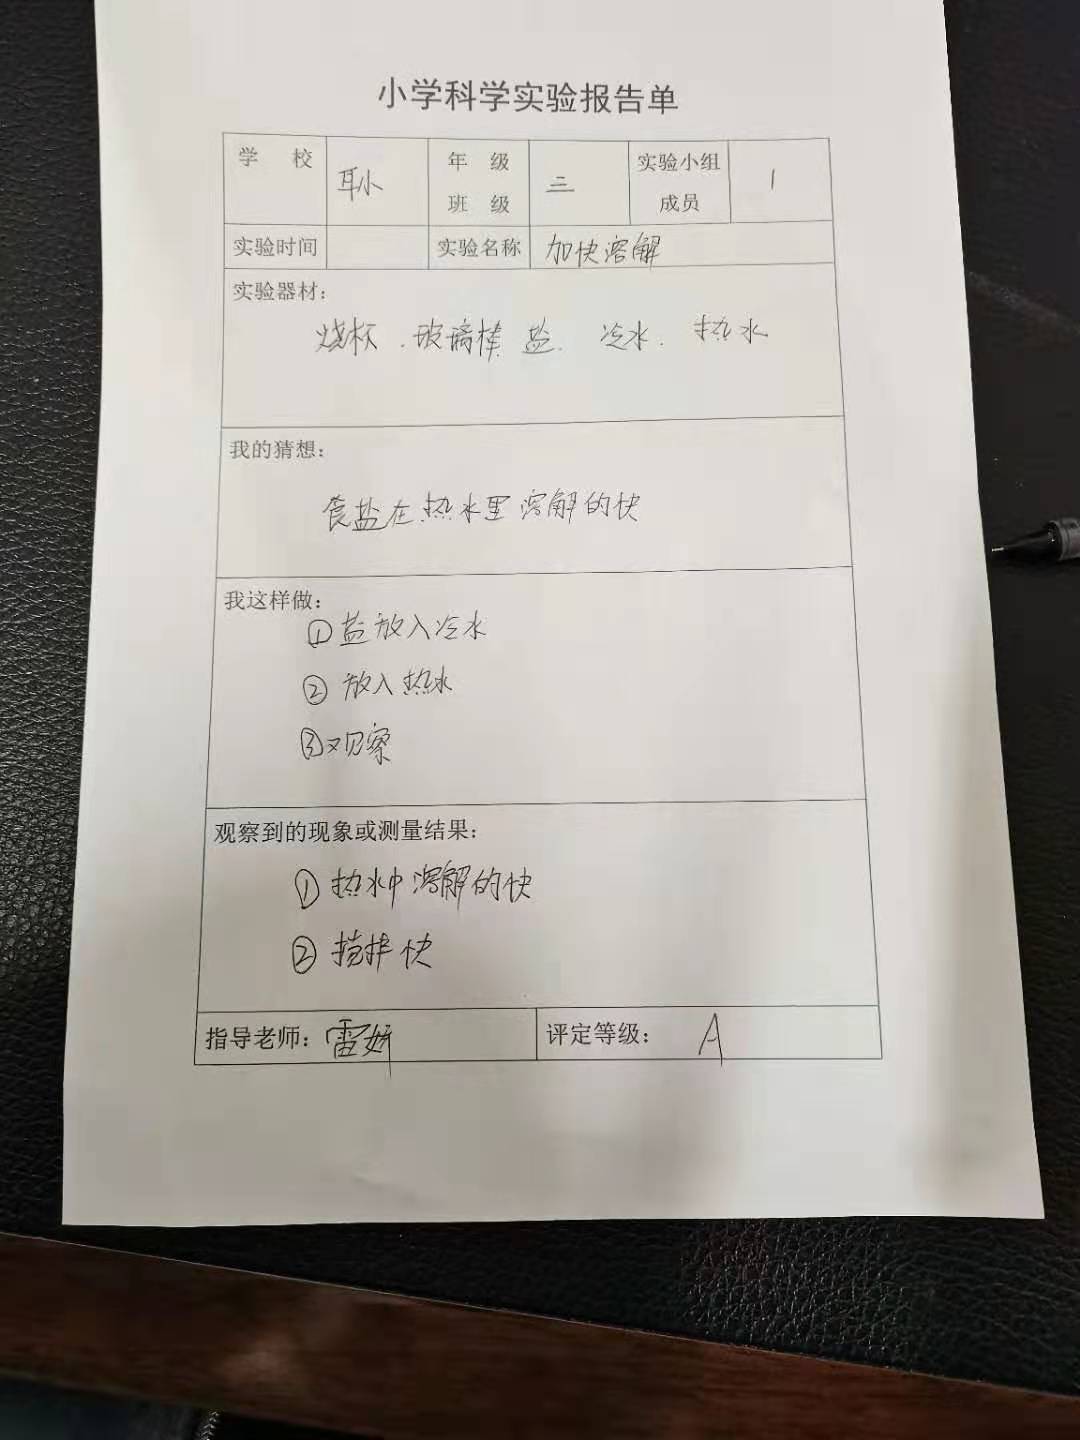 小学科学实验报告单
学 校 耳小 年 级 班 级 三 实验小组 成员 1
实验时间 实验名称 加快溶解
实验器材：
烧杯、玻璃棒 盐、冷水、热水
我的猜想：
食盐在热水里溶解的快
我这样做：
①盐放入冷水
②放入热水
③观察
观察到的现象或测量结果：
①热水中溶解的快
②搅拌快
指导老师：雷妍 评定等级： A